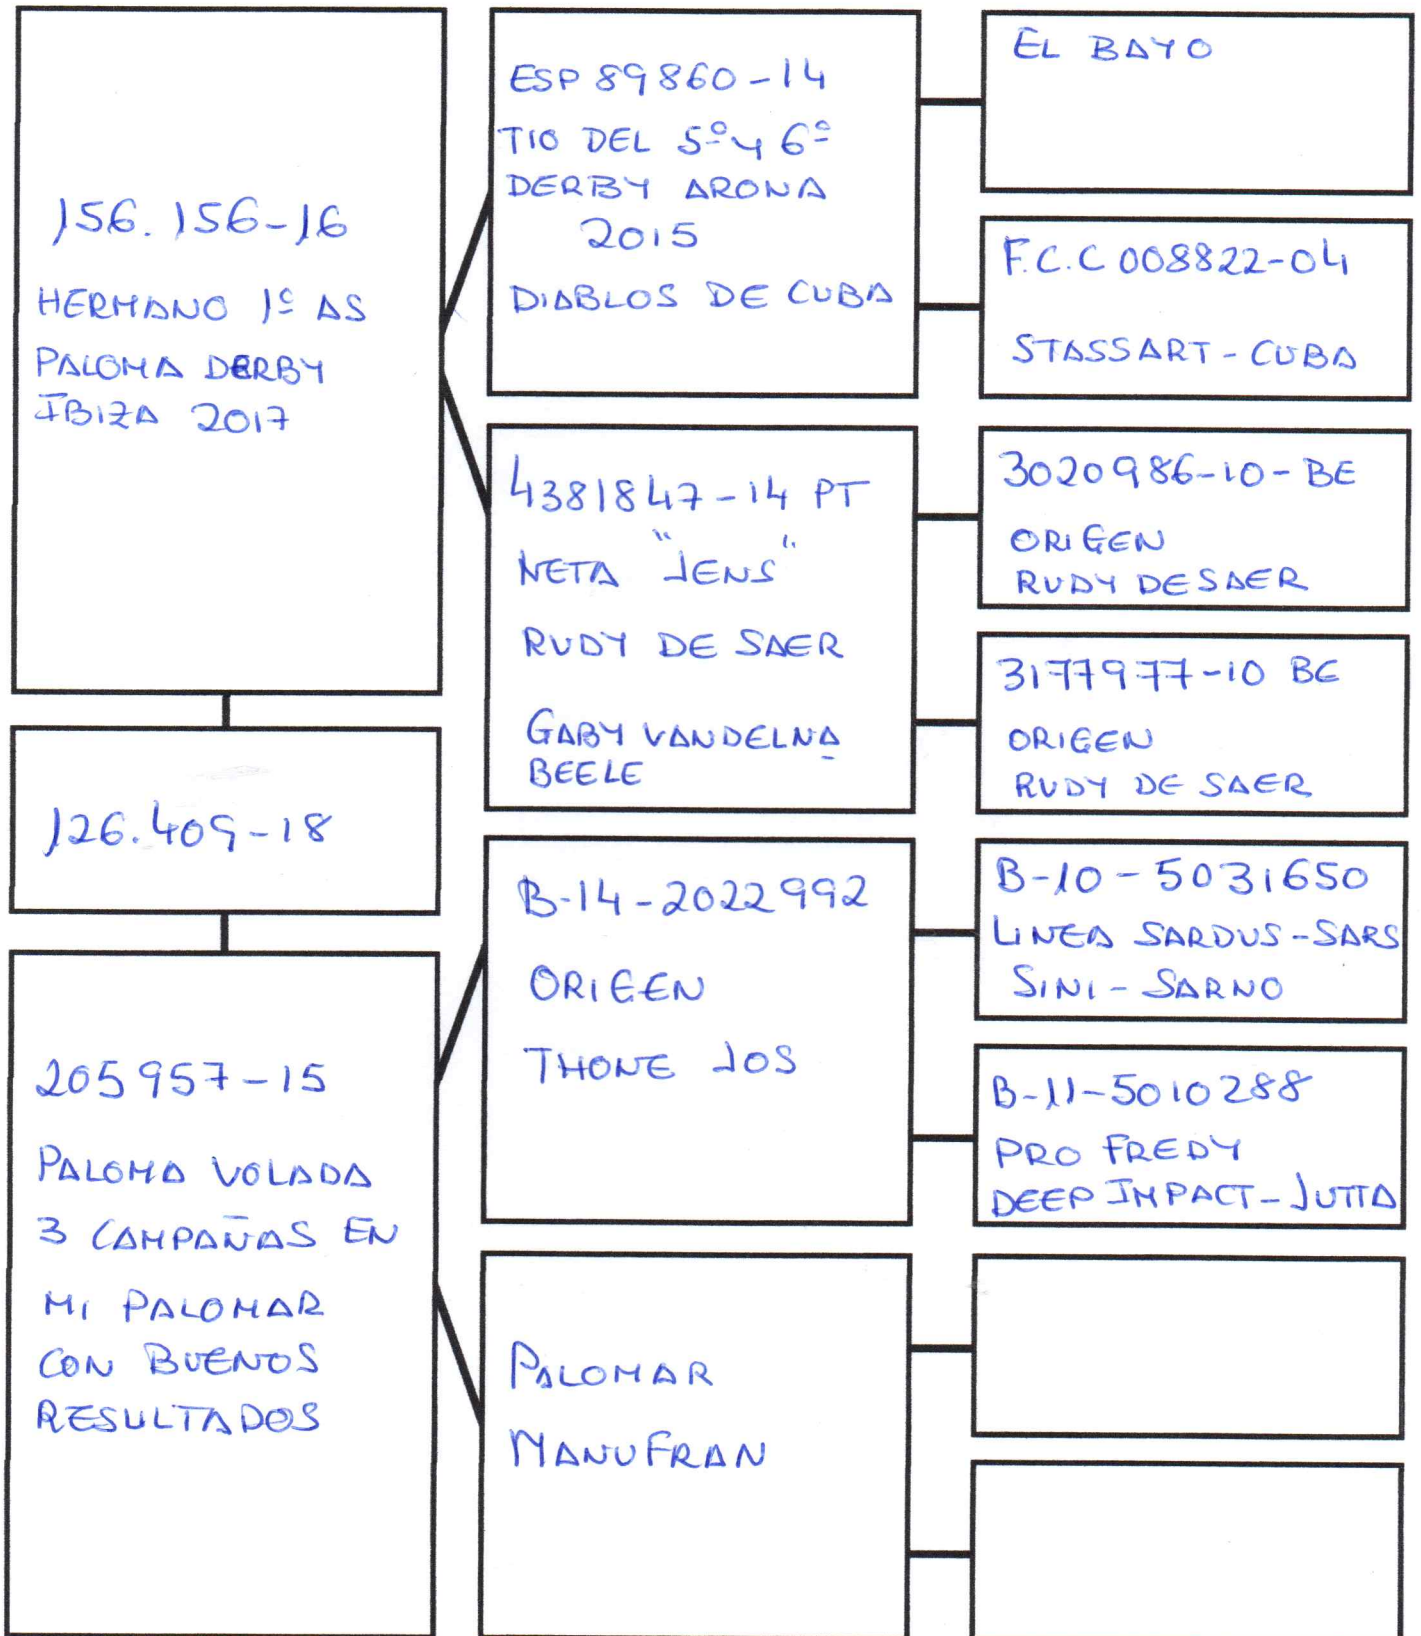 156.156-16
HERMANO 1º AS
PALOMA DERBY
IBIZA 2017
126.409-18
205957-15
PALOMA VOLADA
3 CAMPAÑAS EN
MI PALOMAR
CON BUENOS
RESULTADOS
ESP 89860-14
TIO DEL 5º y 6º
DERBY ARONA
2015
DIABLOS DE CUBA
4381847-14 PT
NETA "JENS"
RUDY DE SAER
GABY VANDELNA
BEELE
B-14-2022992
ORIGEN
THONE JOS
PALOMAR
MANUFRAN
EL BAYO
F.C.C 008822-04
STASSART-CUBA
3020986-10-BE
ORIGEN
RUDY DESAER
3177977-10 BE
ORIGEN
RUDY DE SAER
B-10-5031650
LINEA SARDUS-SARS
SINI-SARNO
B-11-5010288
PRO FREDY
DEEP IMPACT-JUTTA